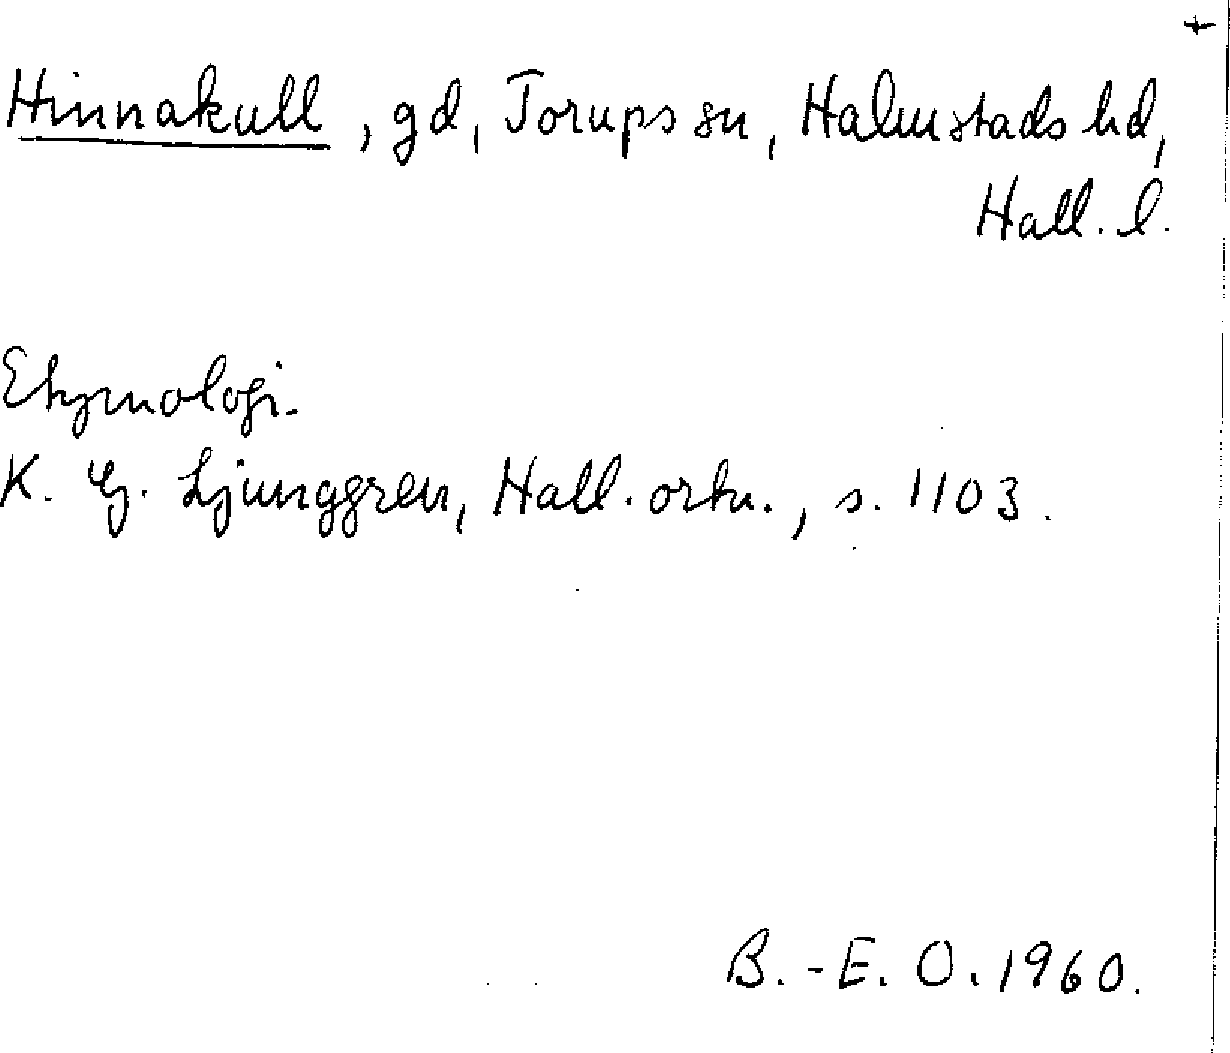 Hinnakull, gd, Torups sn, Halmstads hd,
Hall. l.
Etymologi.
K. G. Ljunggren, Hall. ortn., s. 1103.
B.-E. O. 1960.